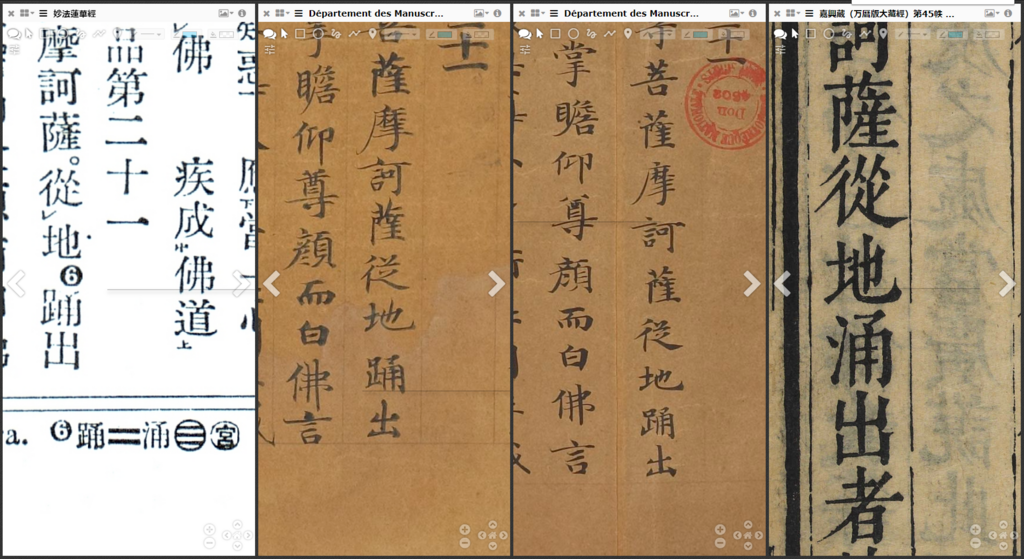 妙法蓮華經
佛 疾成中佛道上
品第二十一
摩訶薩。從レ地❻踊出
a. ❻踊＝涌㊂宮
Département des Manuscr...
二十一
菩薩摩訶薩從地踊出
瞻仰尊顔而白佛言
Département des Manuscr...
二十一
DON
4502
菩薩摩訶薩從地踊出
掌瞻仰尊顔而白佛言
嘉興蔵（万暦版大蔵經）第45帙 ...
訶薩從地涌出者